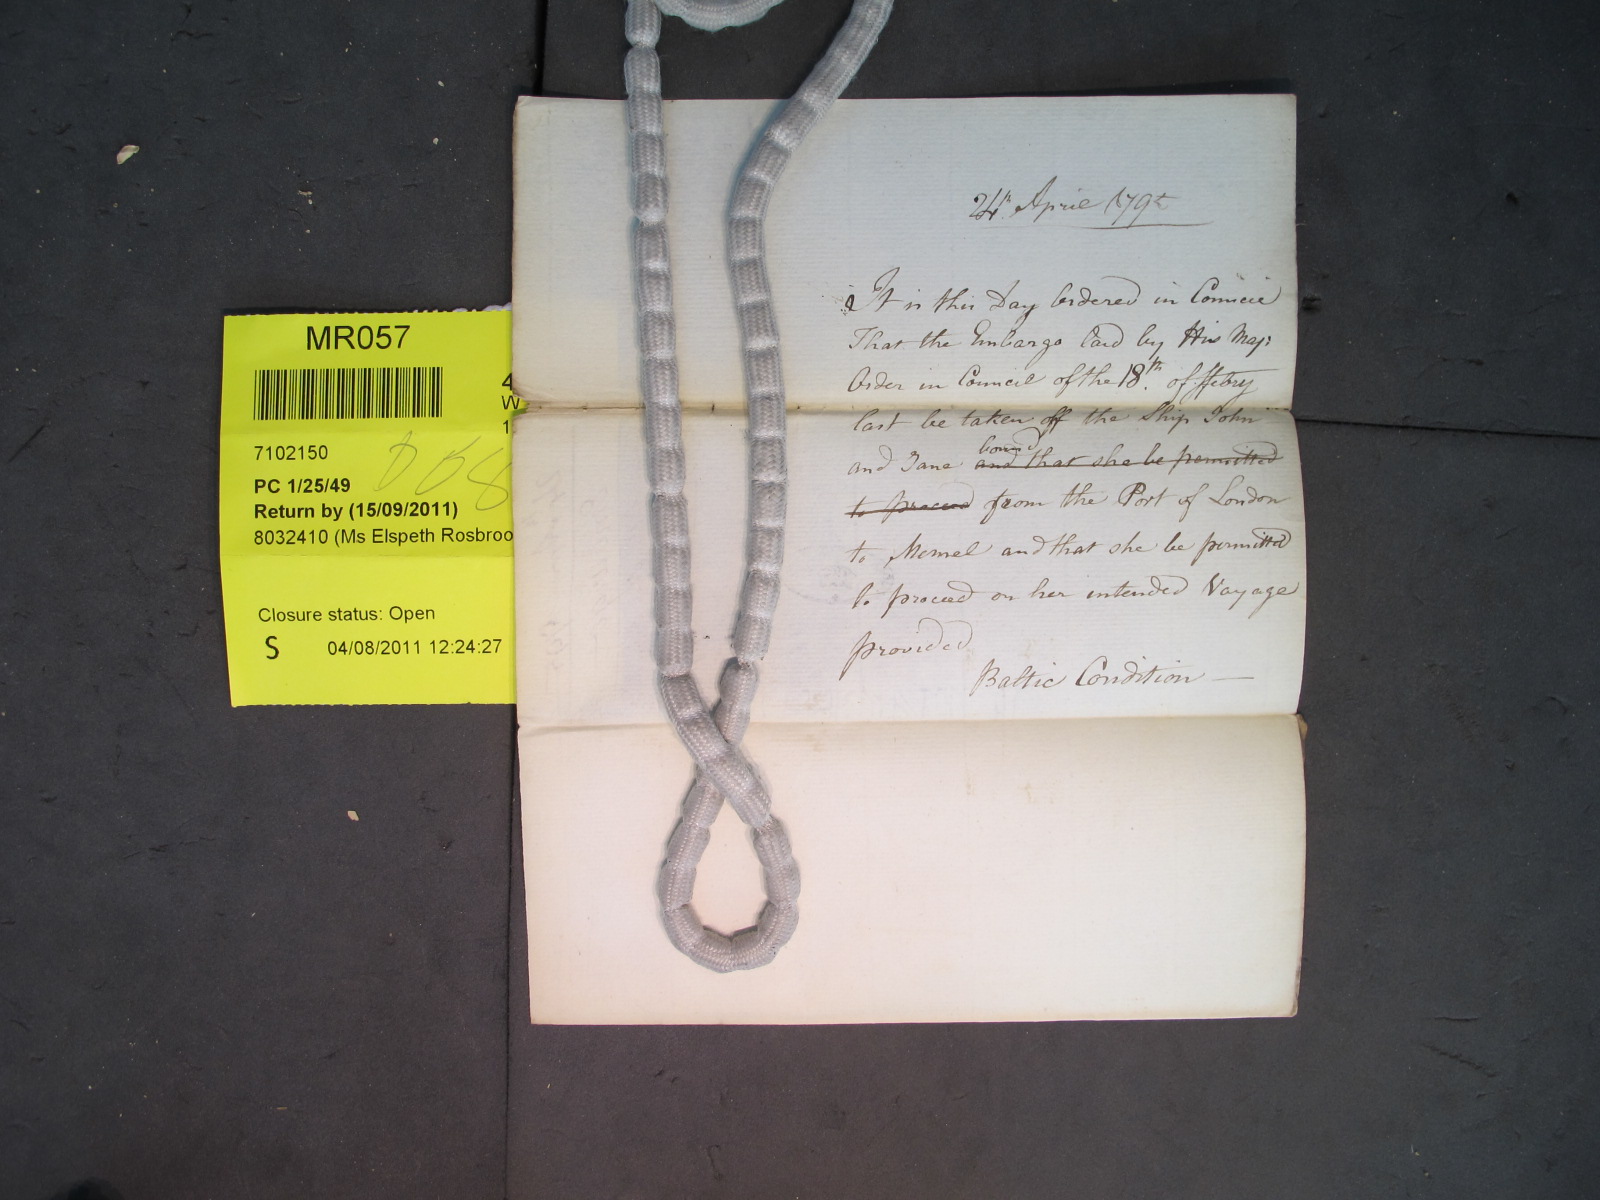 MR057
7102150
PC 1/25/49
Return by (15/09/2011)
8032410 (Ms Elspeth Rosbroo
Closure status: Open
S 04/08/2011 12:24:27
4
W
1
D 68
24th April 1795
It is this Day Ordered in Council
That the Embargo laid by His Maj:
Order in Council of the 18th. of ffebry
last be taken off the Ship John
bound
and Jane and that she be permitted
to proceed from the Port of London
to Memel and that she be permitted
to proceed on her intended Voyage
provided
Baltic Condition —